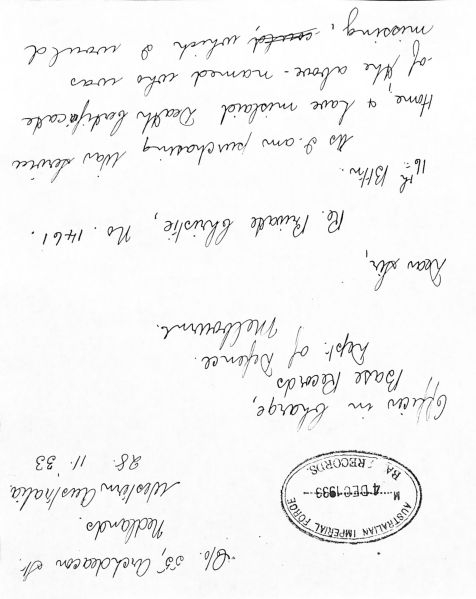 C/o. 55, Archdeacon St.
Nedlands.
Western Australia
28. 11. '33
AUSTRALIAN IMPERIAL FORCE
M 4 DEC 1933
BA RECORDS
Officer in Charge,
Base Records
Dept. of Defence.
Melbourne.
Dear Sir,
Re. Private Christie, No. 1461.
16th Bttn.
As I am purchasing War Service
Home, & have mislaid Death Certificate
of the above-named who was
missing, which I would